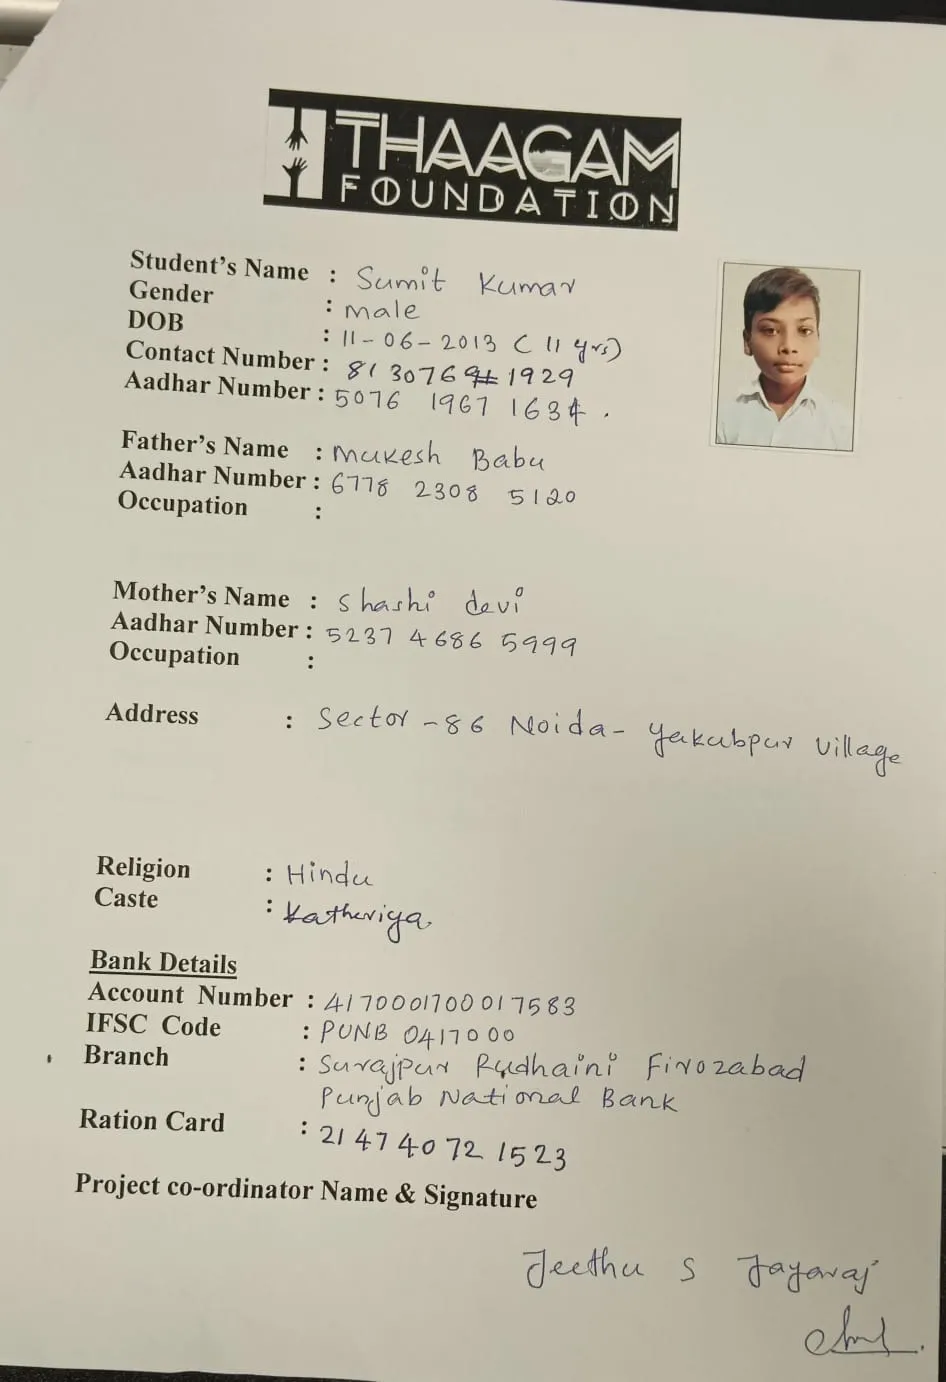 THAAGAM
FOUNDATION
Student's Name : Sumit Kumar
Gender : male
DOB : 11-06-2013 ( 11 yrs)
Contact Number : 81 3076 1929
Aadhar Number : 5076 1967 1634 .
Father's Name : Mukesh Babu
Aadhar Number : 6778 2308 5120
Occupation :
Mother's Name : Shashi devi
Aadhar Number : 5237 4686 5999
Occupation :
Address : Sector -86 Noida- Yakubpur Village
Religion : Hindu
Caste : Katheriya.
Bank Details
Account Number : 4170001700017583
IFSC Code : PUNB 0417000
Branch : Surajpur Rudhaini Firozabad
Punjab National Bank
Ration Card : 21 47 40 72 1523
Project co-ordinator Name & Signature
Jeethu S Jayaraj